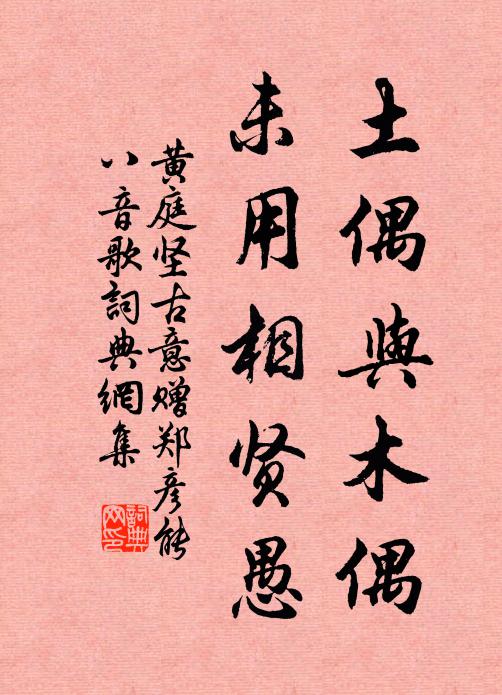 土偶與木偶
未用相贤愚
黄庭坚古意赠郑彦能
八音歌詞典網集
詞典网印